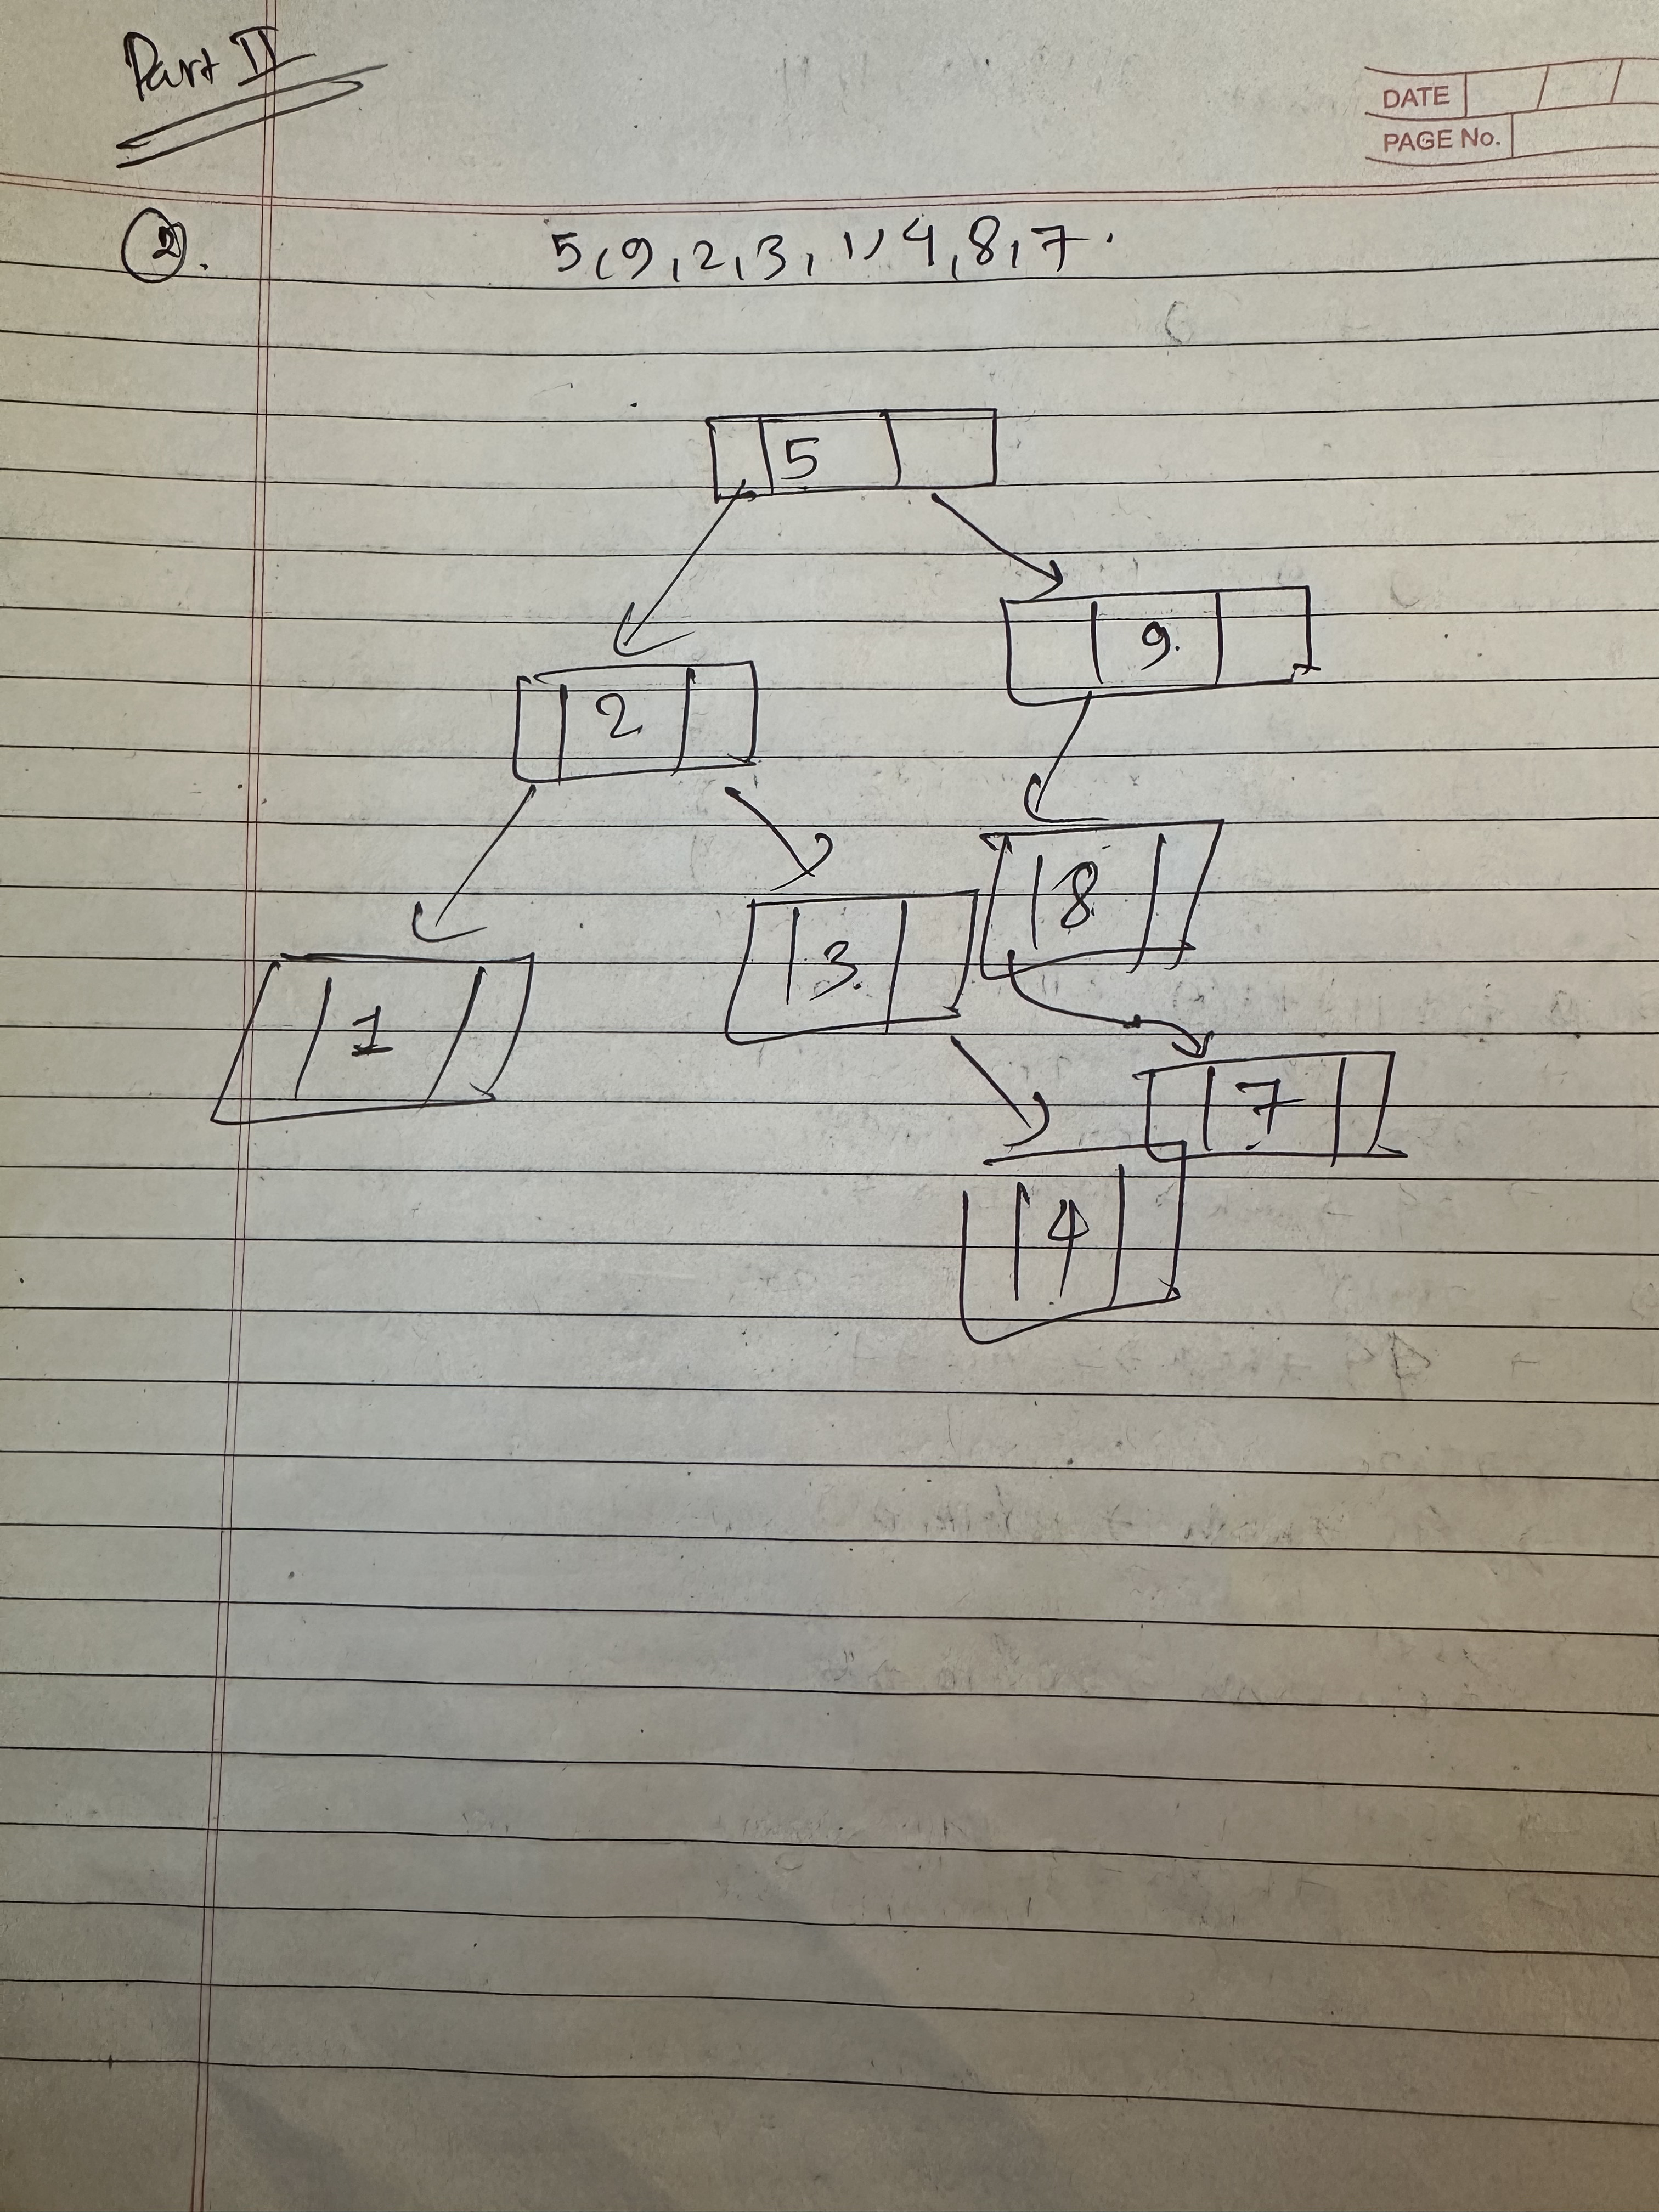 Part II
DATE
PAGE No.
2. 5, 9, 2, 3, 1, 4, 8, 7.
5
9.
2
8
3.
1
7
4